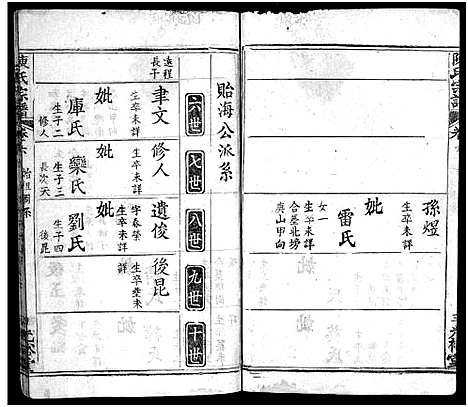 陳氏宗譜
孫煜
生卒未詳
妣
雷氏
生卒未詳
女一
合葬北塝
庚山甲向
貽海公派系
六世
七世
八世
九世
十世
遠程
長子
聿文
生卒未詳
妣
庫氏
生子二
修人
修人
生卒未詳
妣
欒氏
生子三
長次夭
遺俊
字春榮
生卒未詳
妣
劉氏
生子四
後昆
後昆
生卒塟未
詳
氏宗譜